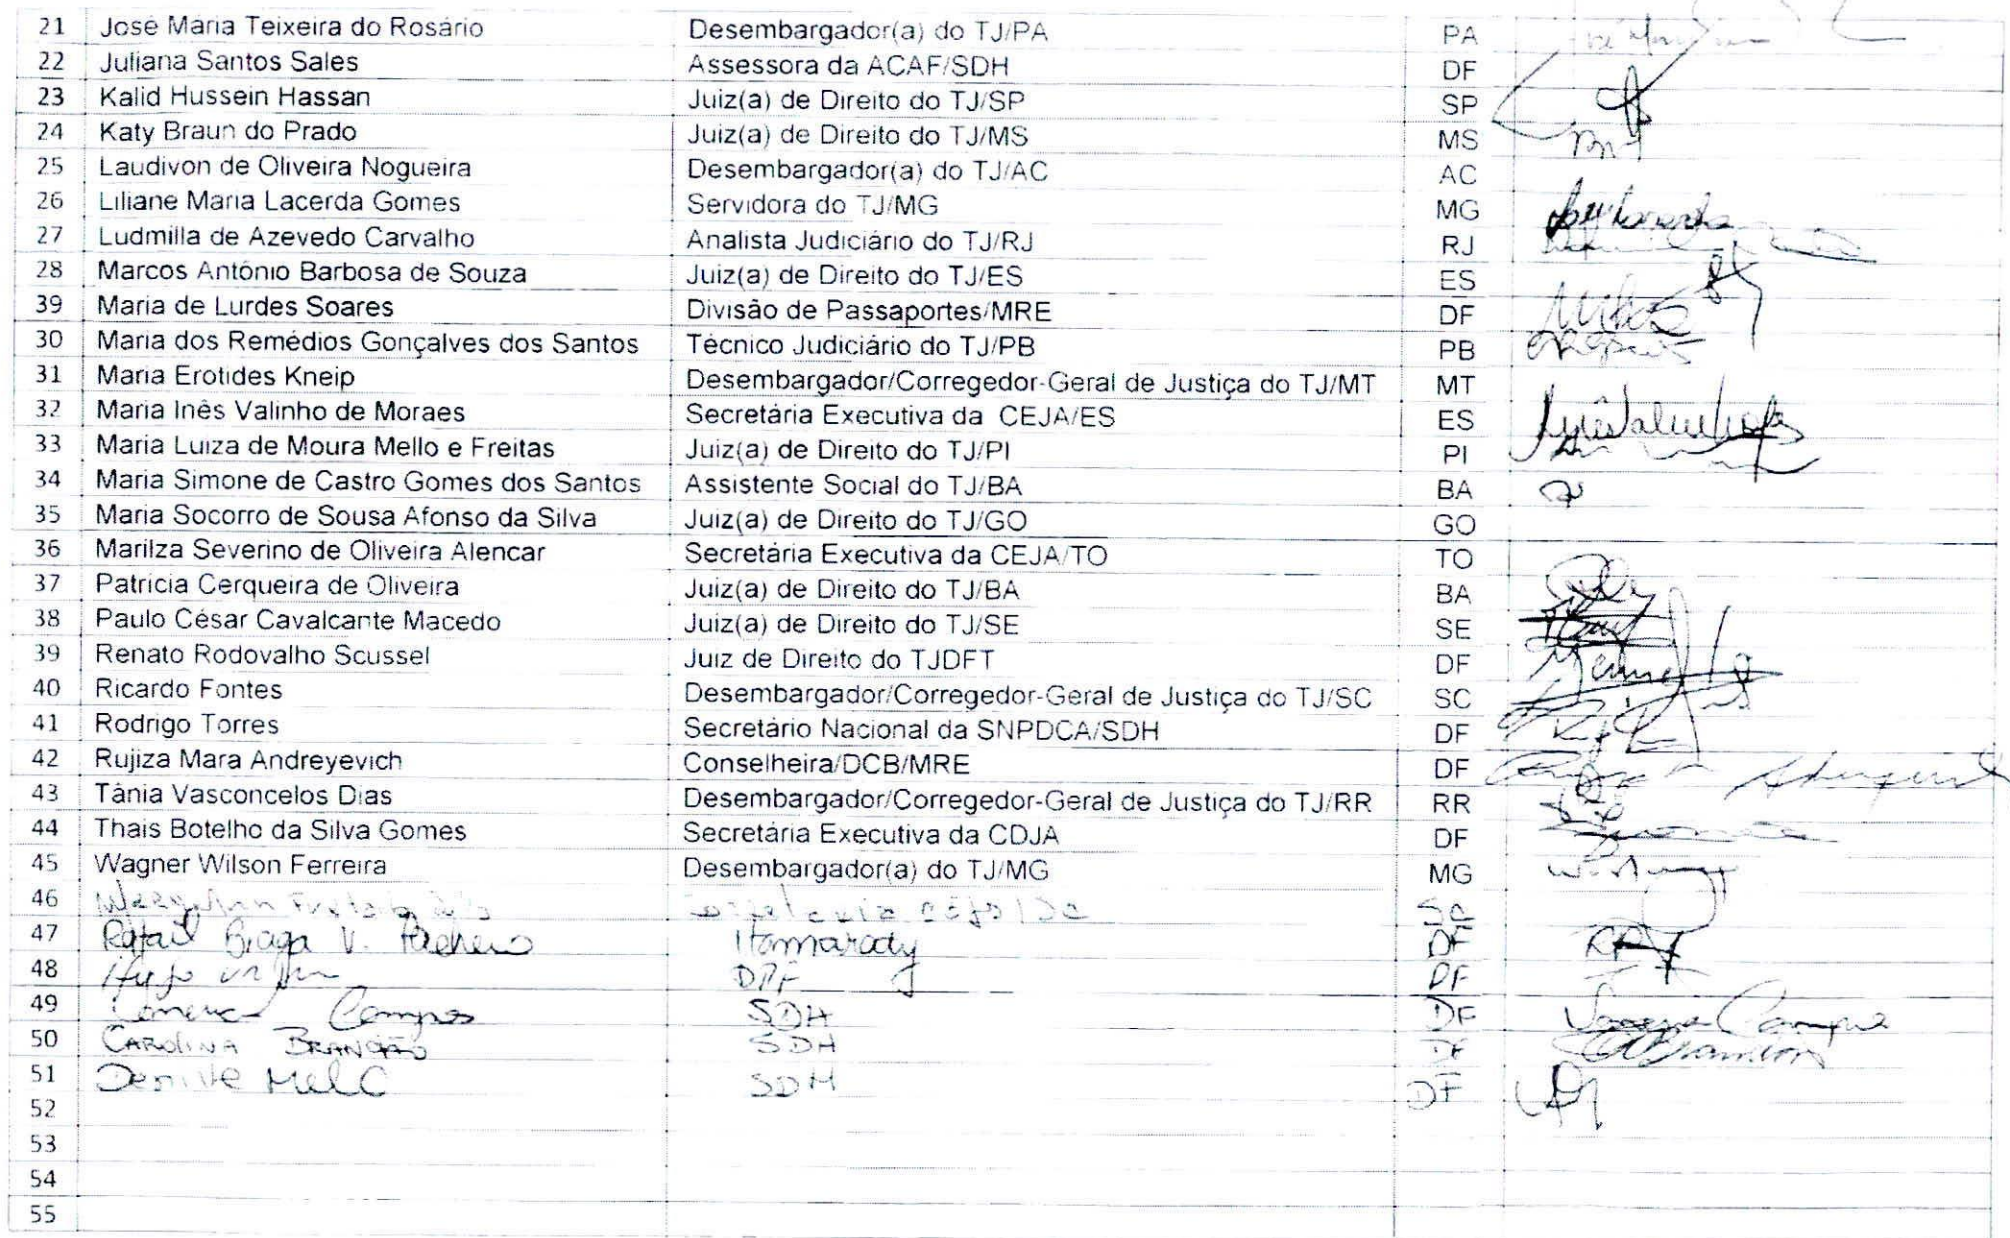 21 José Maria Teixeira do Rosário Desembargador(a) do TJ/PA PA
22 Juliana Santos Sales Assessora da ACAF/SDH DF
23 Kalid Hussein Hassan Juiz(a) de Direito do TJ/SP SP
24 Katy Braun do Prado Juiz(a) de Direito do TJ/MS MS
25 Laudivon de Oliveira Nogueira Desembargador(a) do TJ/AC AC
26 Liliane Maria Lacerda Gomes Servidora do TJ/MG MG
27 Ludmilla de Azevedo Carvalho Analista Judiciário do TJ/RJ RJ
28 Marcos Antônio Barbosa de Souza Juiz(a) de Direito do TJ/ES ES
39 Maria de Lurdes Soares Divisão de Passaportes/MRE DF
30 Maria dos Remédios Gonçalves dos Santos Técnico Judiciário do TJ/PB PB
31 Maria Erotides Kneip Desembargador/Corregedor-Geral de Justiça do TJ/MT MT
32 Maria Inês Valinho de Moraes Secretária Executiva da CEJA/ES ES
33 Maria Luiza de Moura Mello e Freitas Juiz(a) de Direito do TJ/PI PI
34 Maria Simone de Castro Gomes dos Santos Assistente Social do TJ/BA BA
35 Maria Socorro de Sousa Afonso da Silva Juiz(a) de Direito do TJ/GO GO
36 Marilza Severino de Oliveira Alencar Secretária Executiva da CEJA/TO TO
37 Patricia Cerqueira de Oliveira Juiz(a) de Direito do TJ/BA BA
38 Paulo César Cavalcante Macedo Juiz(a) de Direito do TJ/SE SE
39 Renato Rodovalho Scussel Juiz de Direito do TJDFT DF
40 Ricardo Fontes Desembargador/Corregedor-Geral de Justiça do TJ/SC SC
41 Rodrigo Torres Secretário Nacional da SNPDCA/SDH DF
42 Rujiza Mara Andreyevich Conselheira/DCB/MRE DF
43 Tânia Vasconcelos Dias Desembargador/Corregedor-Geral de Justiça do TJ/RR RR
44 Thais Botelho da Silva Gomes Secretária Executiva da CDJA DF
45 Wagner Wilson Ferreira Desembargador(a) do TJ/MG MG
46 SC
47 Rafael Braga V. Itamaraty DF
48 Hugo DPF DF
49 Campos SDH DF Campos
50 CAROLINA BRANDÃO SDH DF
51 Denise Melo SDH DF
52
53
54
55